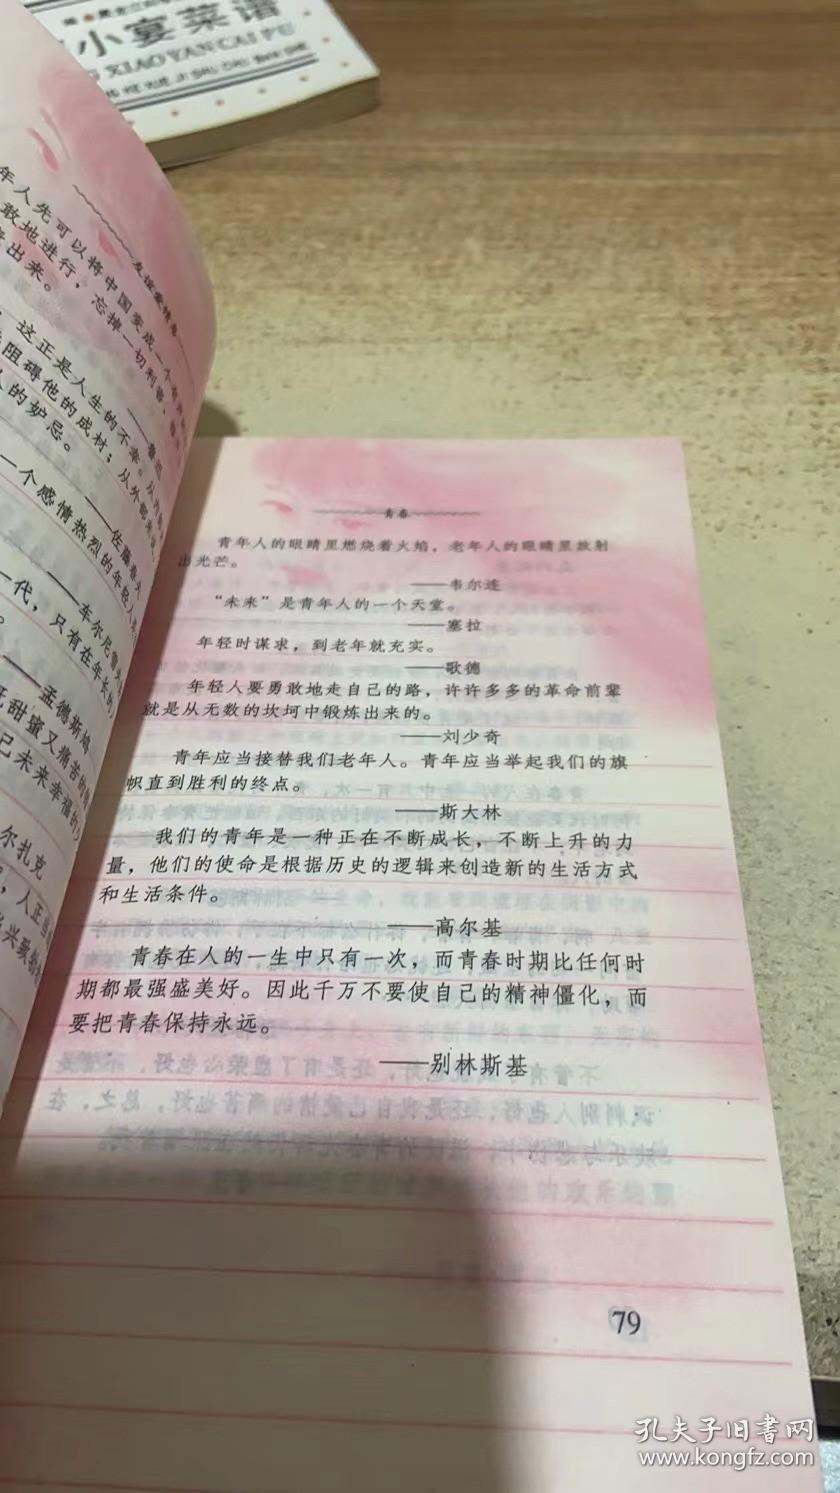 小宴菜谱
XIAO YAN CAI PU
年人先可以将中国变成一个有
敢地进行，忘掉一切利害，
出来。
这正是人生的不幸。从内
阻碍他的成材；从外部来
人的妒忌。
——佐藤春夫
一个感情热烈的年轻人
——车尔尼雪夫
代，只有在年长的
——孟德斯鸠
甜蜜又痛苦的
己未来幸福的
尔扎克
，人正当
兴致勃勃
青春
青年人的眼睛里燃烧着火焰，老年人的眼睛里放射
出光芒。
——韦尔连
“未来”是青年人的一个天堂。
——塞拉
年轻时谋求，到老年就充实。
——歌德
年轻人要勇敢地走自己的路，许许多多的革命前辈
就是从无数的坎坷中锻炼出来的。
——刘少奇
青年应当接替我们老年人。青年应当举起我们的旗
帜直到胜利的终点。
——斯大林
我们的青年是一种正在不断成长，不断上升的力
量，他们的使命是根据历史的逻辑来创造新的生活方式
和生活条件。
——高尔基
青春在人的一生中只有一次，而青春时期比任何时
期都最强盛美好。因此千万不要使自己的精神僵化，而
要把青春保持永远。
——别林斯基
79
孔夫子旧书网
www.kongfz.com